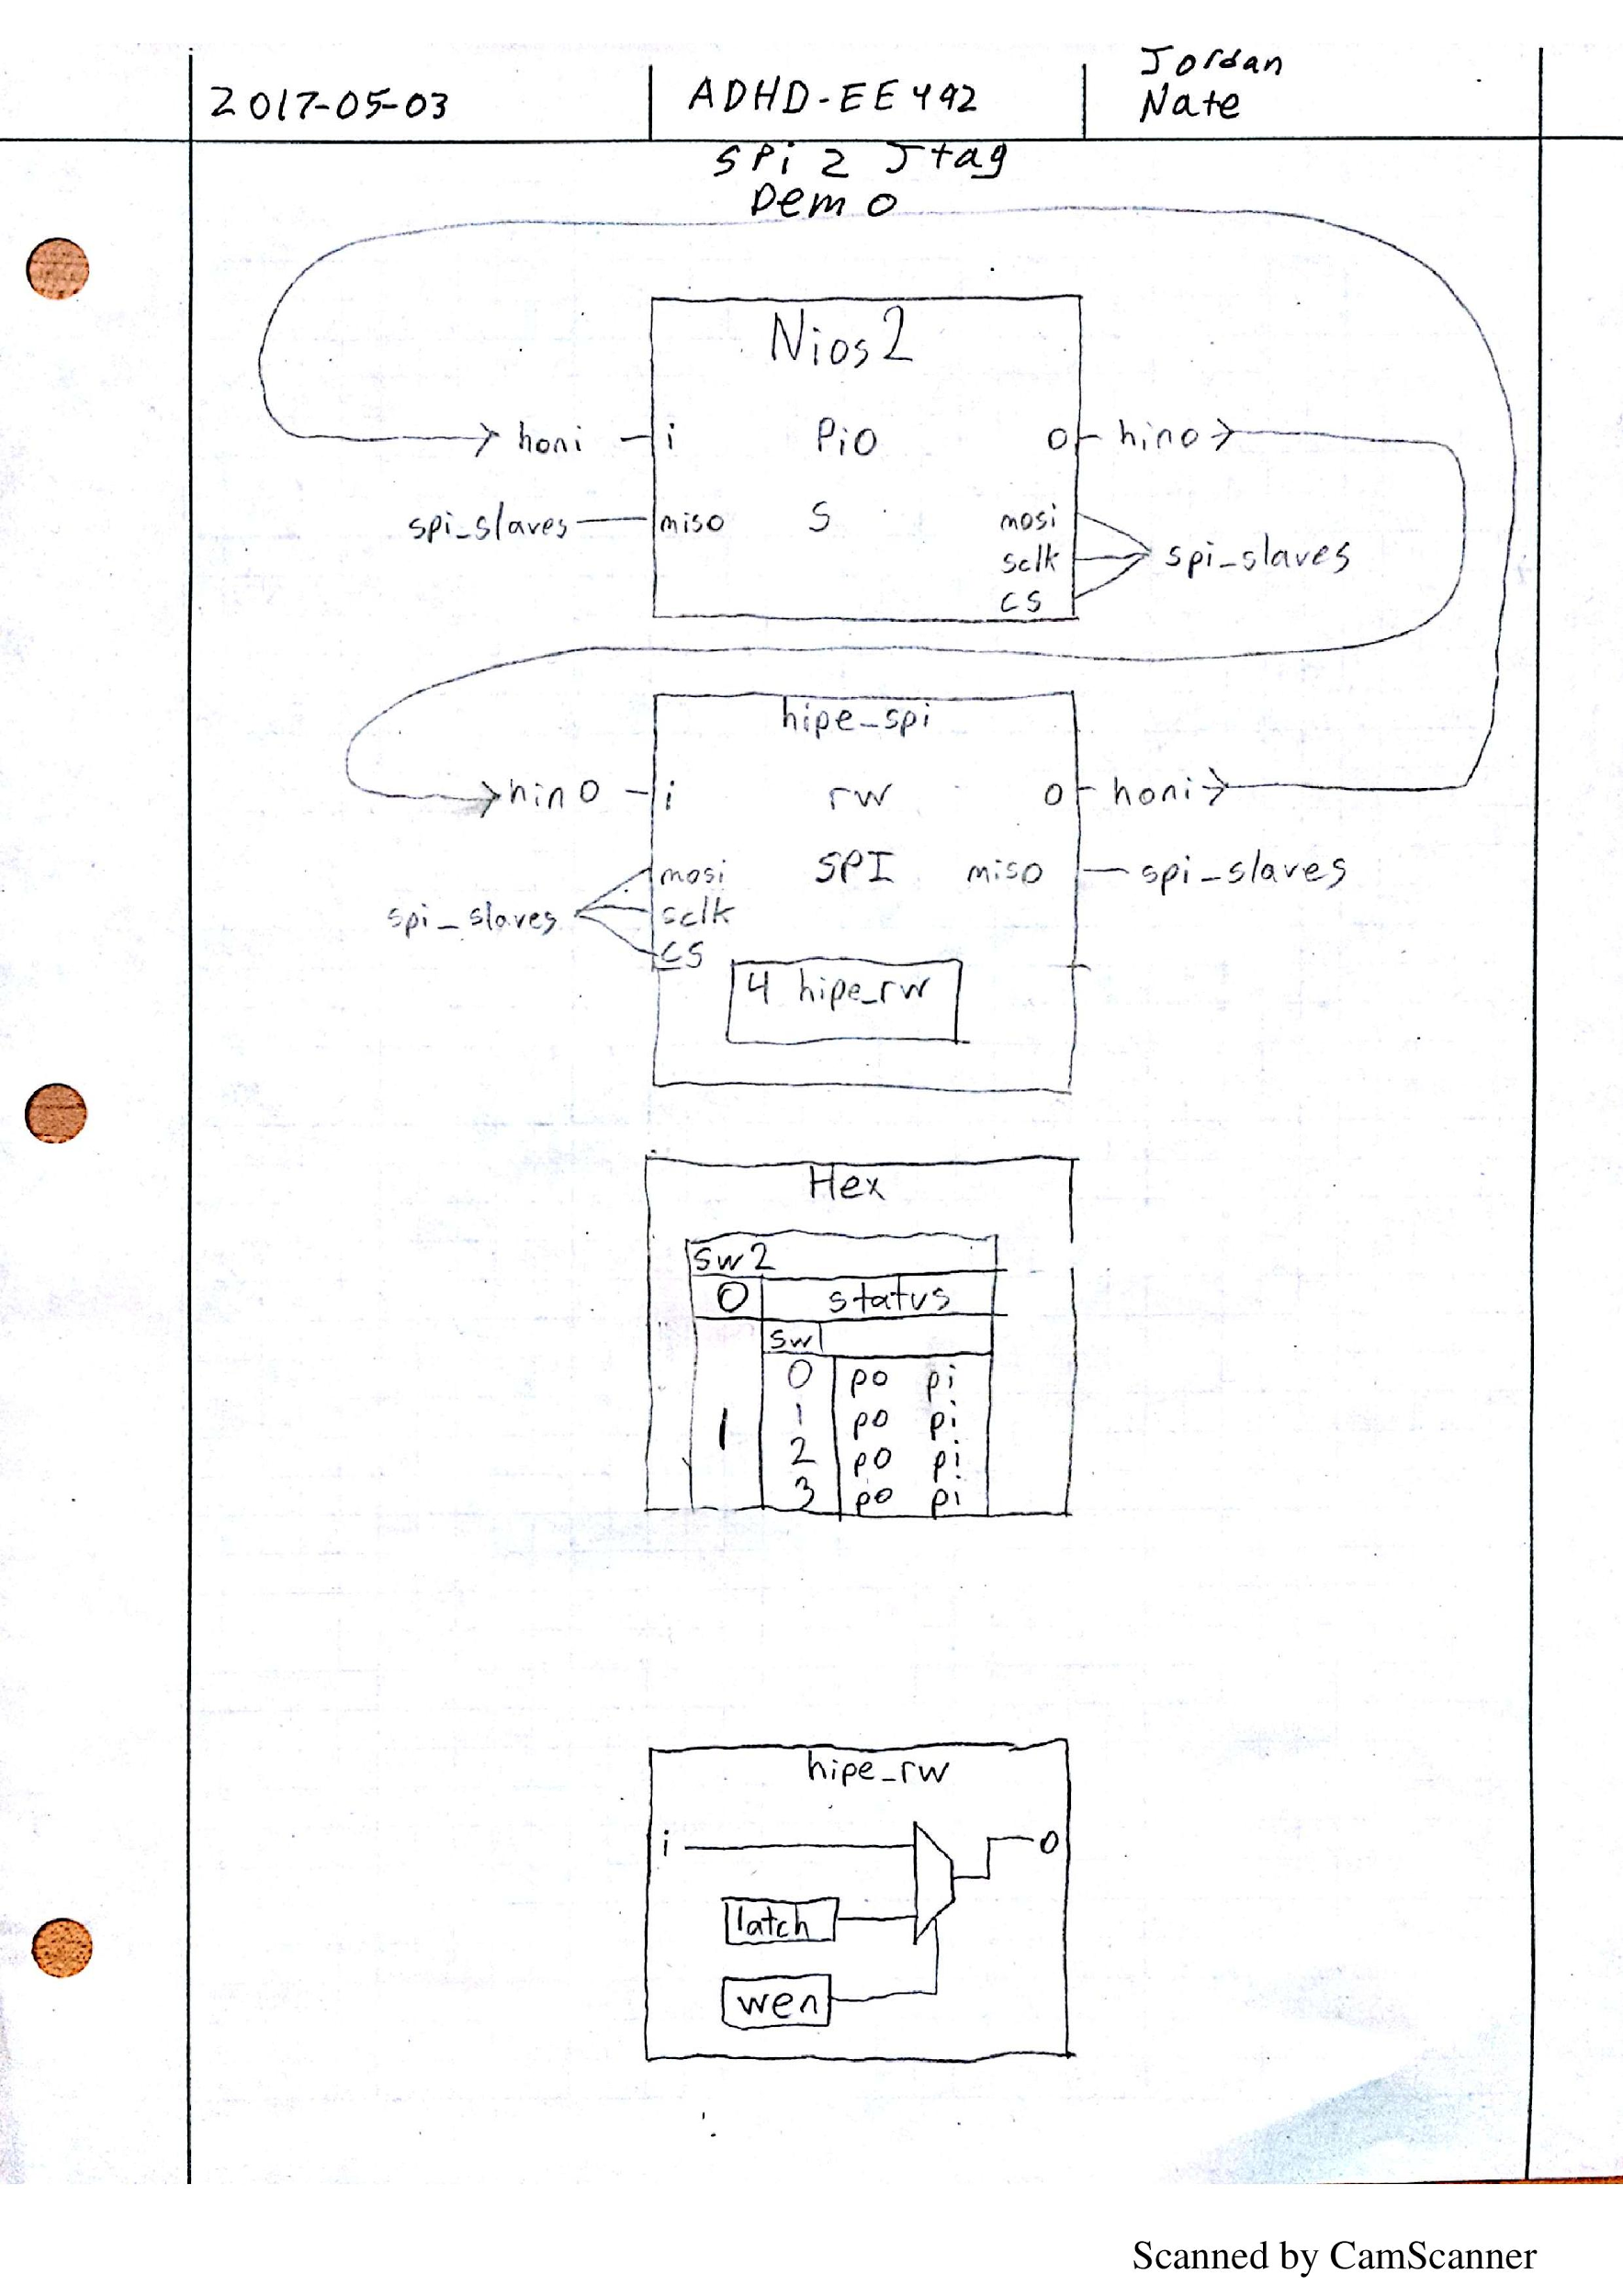 2017-05-03 ADHD-EE442 Jordan
Nate
SPi 2 Jtag
Demo
Nios2
honi i Pio o hino
spi_slaves miso S mosi
sclk spi_slaves
cs
hipe_spi
hino i rw o honi
mosi SPI miso spi_slaves
spi_slaves sclk
cs
4 hipe_rw
Hex
sw2
0 status
sw
0 po pi
1 po pi
1 2 po pi
3 po pi
hipe_rw
i o
latch
wen
Scanned by CamScanner